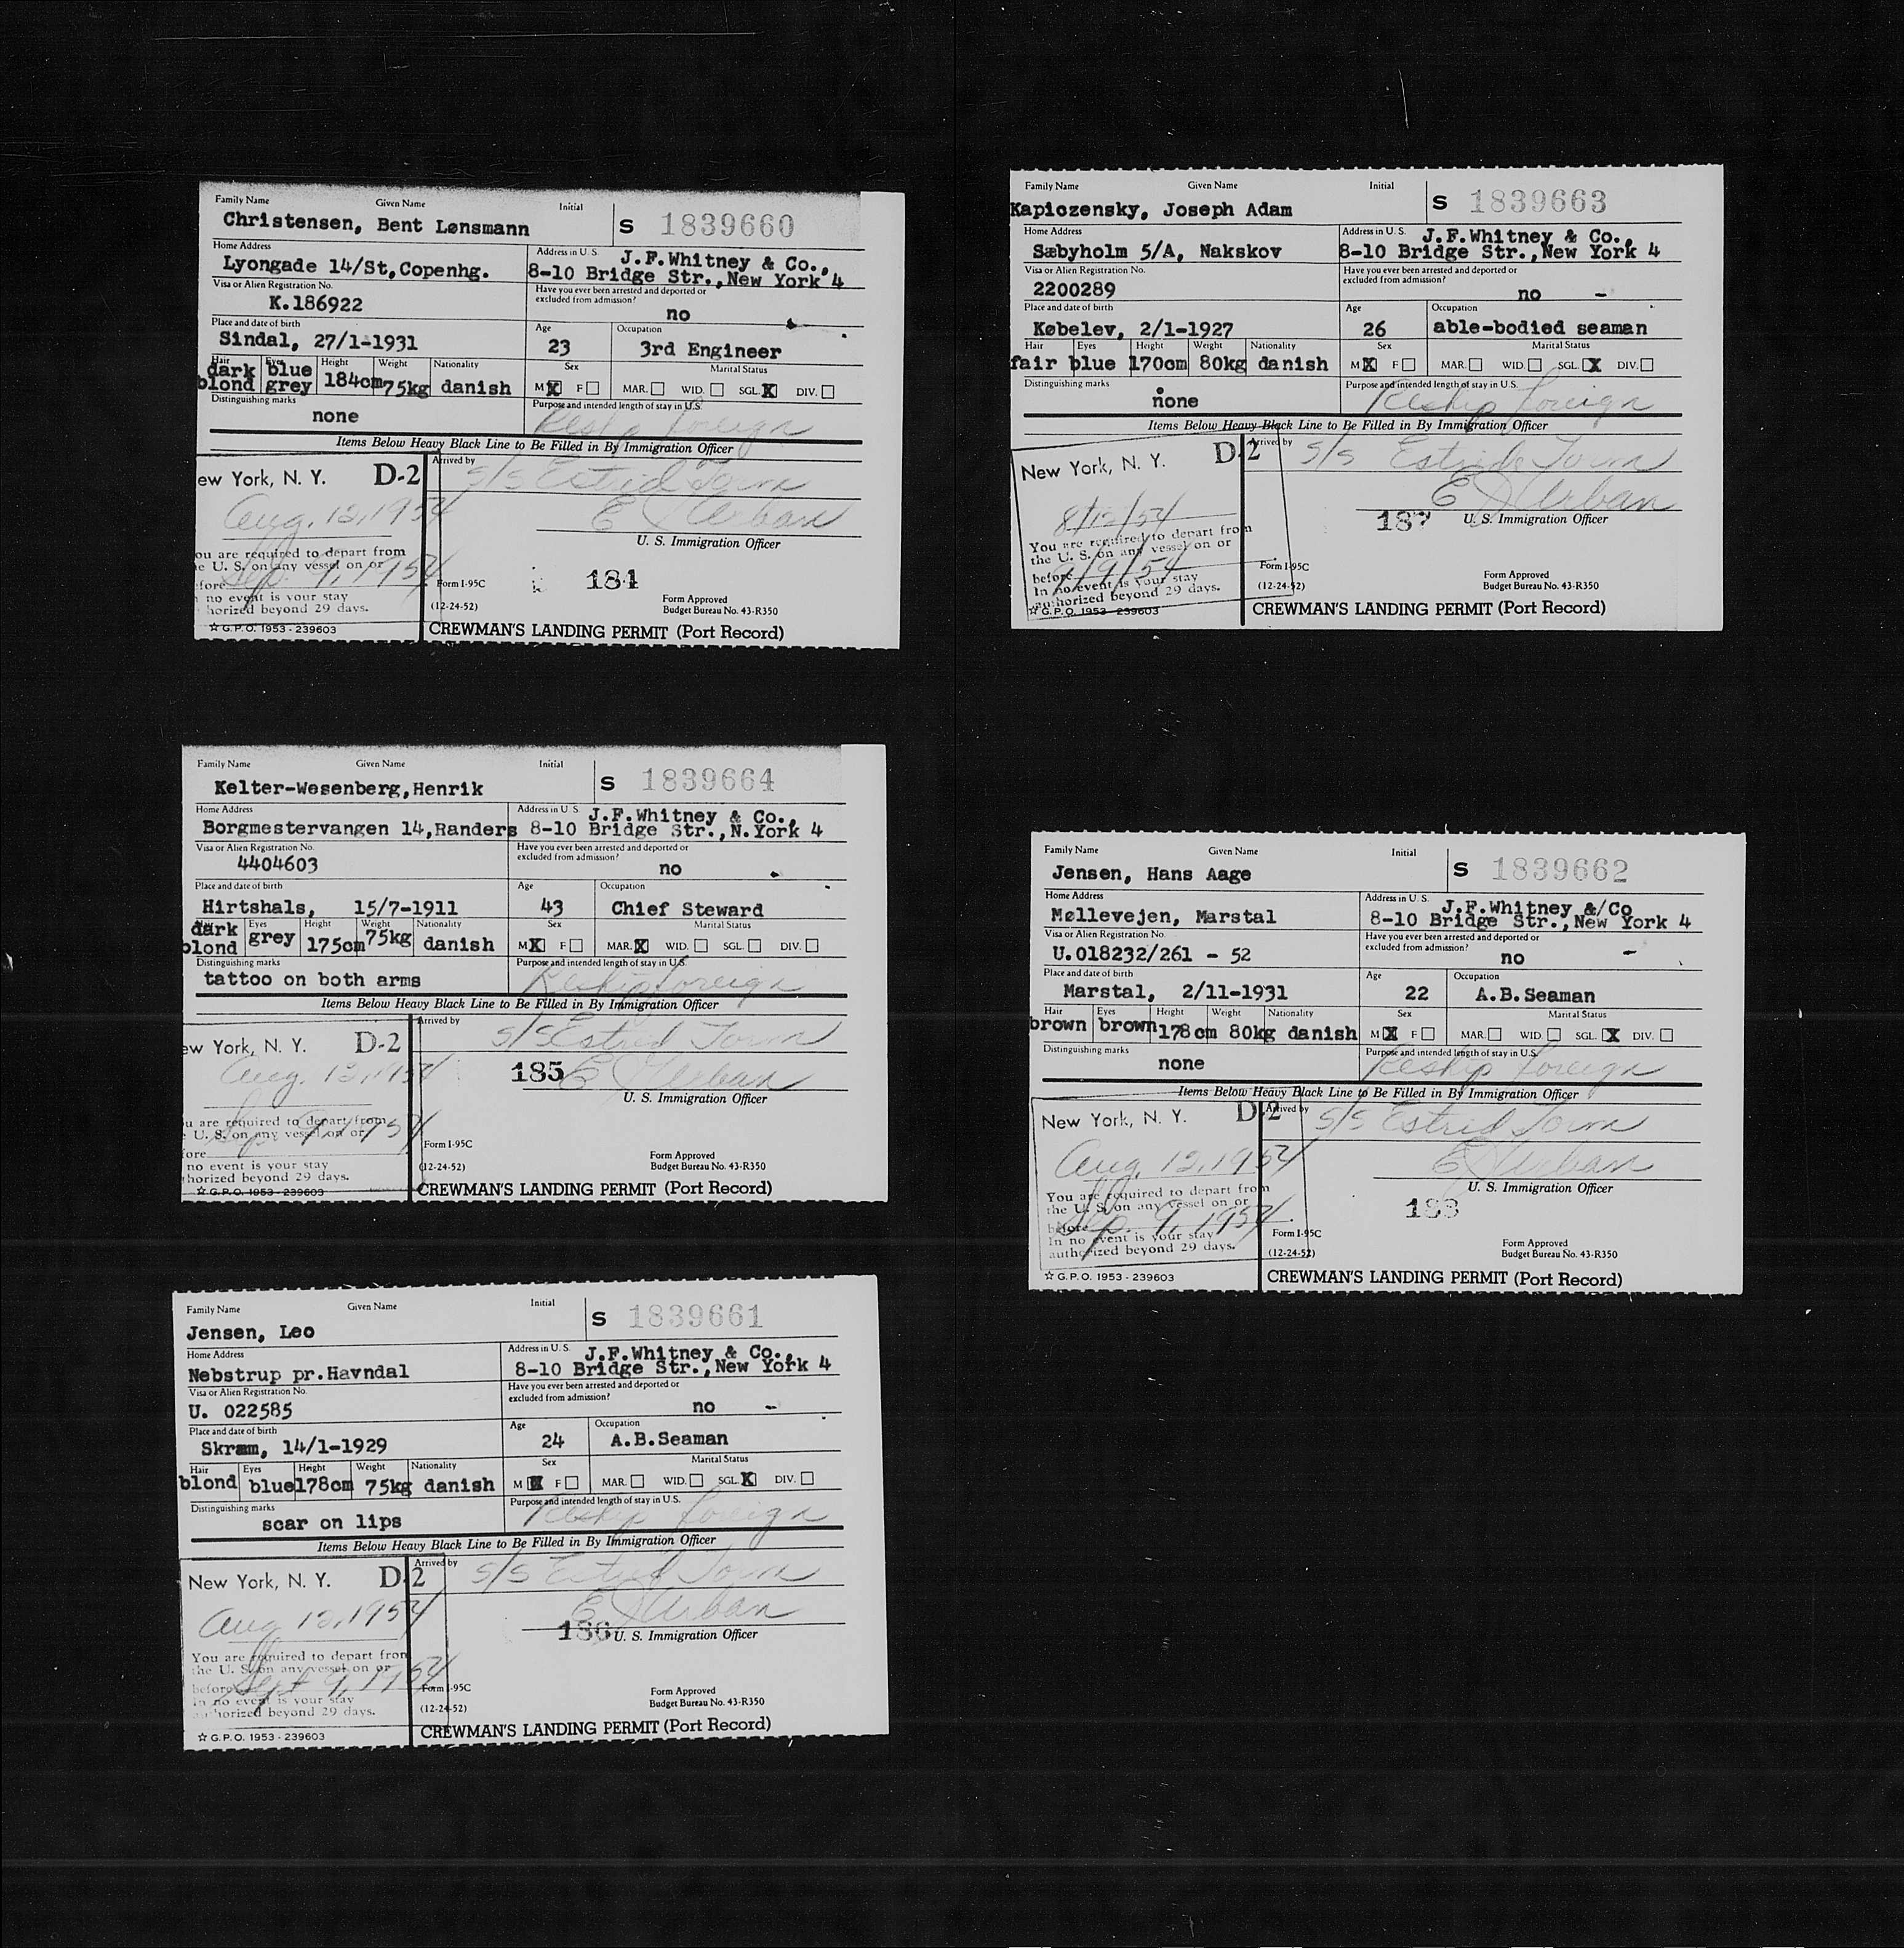 Family Name Given Name Initial
Christensen, Bent Lønsmann S 1839660
Home Address Address in U. S.
Lyongade 14/St,Copenhg. J.F.Whitney & Co.,
8-10 Bridge Str.,New York 4
Visa or Alien Registration No. Have you ever been arrested and deported or excluded from admission?
K.186922 no
Place and date of birth Age Occupation
Sindal, 27/1-1931 23 3rd Engineer
Hair Eyes Height Weight Nationality Sex Marital Status
dark blond blue grey 184cm 75kg danish M X F MAR. WID. SGL. X DIV.
Distinguishing marks Purpose and intended length of stay in U.S.
none Reship foreign
Items Below Heavy Black Line to Be Filled in By Immigration Officer
ew York, N. Y. D-2 Arrived by S/S Estrid Torm
Aug. 12, 1954 E J Urban
U. S. Immigration Officer
ou are required to depart from
e U. S. on any vessel on or
fore Sep. 9, 1954
no event is your stay
horized beyond 29 days.
Form I-95C
(12-24-52)
184
Form Approved
Budget Bureau No. 43-R350
☆ G.P.O. 1953 - 239603
CREWMAN'S LANDING PERMIT (Port Record)
Family Name Given Name Initial
Kapiczensky, Joseph Adam S 1839663
Home Address Address in U. S.
Sæbyholm 5/A, Nakskov J.F.Whitney & Co.,
8-10 Bridge Str.,New York 4
Visa or Alien Registration No. Have you ever been arrested and deported or excluded from admission?
2200289 no -
Place and date of birth Age Occupation
Købelev, 2/1-1927 26 able-bodied seaman
Hair Eyes Height Weight Nationality Sex Marital Status
fair blue 170cm 80kg danish M X F MAR. WID. SGL. X DIV.
Distinguishing marks Purpose and intended length of stay in U.S.
none Reship foreign
Items Below Heavy Black Line to Be Filled in By Immigration Officer
New York, N. Y. D-2 Arrived by S/S Estrid Torm
8/12/54 E J Urban
187 U. S. Immigration Officer
You are required to depart from
the U. S. on any vessel on or
before 9/9/54
In no event is your stay
authorized beyond 29 days.
Form I-95C
(12-24-52)
Form Approved
Budget Bureau No. 43-R350
☆ G.P.O. 1953 - 239603
CREWMAN'S LANDING PERMIT (Port Record)
Family Name Given Name Initial
Kelter-Wesenberg,Henrik S 1839664
Home Address Address in U. S.
Borgmestervangen 14,Randers J.F.Whitney & Co.,
8-10 Bridge Str.,N.York 4
Visa or Alien Registration No. Have you ever been arrested and deported or excluded from admission?
4404603 no
Place and date of birth Age Occupation
Hirtshals, 15/7-1911 43 Chief Steward
Eyes Height Weight Nationality Sex Marital Status
dark blond grey 175cm 75kg danish M X F MAR. X WID. SGL. DIV.
Distinguishing marks Purpose and intended length of stay in U.S.
tattoo on both arms Reship foreign
Items Below Heavy Black Line to Be Filled in By Immigration Officer
ew York, N. Y. D-2 Arrived by S/S Estrid Torm
Aug. 12, 1954 185 E J Urban
U. S. Immigration Officer
u are required to depart from
U. S. on any vessel on or
ore Sep. 9, 1954
no event is your stay
horized beyond 29 days.
Form I-95C
(12-24-52)
Form Approved
Budget Bureau No. 43-R350
☆ G.P.O. 1953 - 239603
CREWMAN'S LANDING PERMIT (Port Record)
Family Name Given Name Initial
Jensen, Hans Aage S 1839662
Home Address Address in U. S.
Møllevejen, Marstal J.F.Whitney &/Co
8-10 Bridge Str.,New York 4
Visa or Alien Registration No. Have you ever been arrested and deported or excluded from admission?
U.018232/261 - 52 no -
Place and date of birth Age Occupation
Marstal, 2/11-1931 22 A.B.Seaman
Hair Eyes Height Weight Nationality Sex Marital Status
brown brown 178cm 80kg danish M X F MAR. WID SGL. X DIV.
Distinguishing marks Purpose and intended length of stay in U.S.
none Reship foreign
Items Below Heavy Black Line to Be Filled in By Immigration Officer
New York, N. Y. D-2 Arrived by S/S Estrid Torm
Aug. 12, 1954 E J Urban
U. S. Immigration Officer
You are required to depart from
the U. S. on any vessel on or
before Sep. 9, 1954
In no event is your stay
authorized beyond 29 days.
Form I-95C
(12-24-52)
Form Approved
Budget Bureau No. 43-R350
☆ G.P.O. 1953 - 239603
CREWMAN'S LANDING PERMIT (Port Record)
Family Name Given Name Initial
Jensen, Leo S 1839661
Home Address Address in U. S.
Nebstrup pr.Havndal J.F.Whitney & Co.,
8-10 Bridge Str.,New York 4
Visa or Alien Registration No. Have you ever been arrested and deported or excluded from admission?
U. 022585 no -
Place and date of birth Age Occupation
Skræm, 14/1-1929 24 A.B.Seaman
Hair Eyes Height Weight Nationality Sex Marital Status
blond blue 178cm 75kg danish M X F MAR. WID. SGL. X DIV.
Distinguishing marks Purpose and intended length of stay in U.S.
scar on lips Reship foreign
Items Below Heavy Black Line to Be Filled in By Immigration Officer
New York, N. Y. D-2 Arrived by S/S Estrid Torm
Aug 12, 1954 E J Urban
186 U. S. Immigration Officer
You are required to depart from
the U. S. on any vessel on or
before Sept 9, 1954
In no event is your stay
authorized beyond 29 days.
Form I-95C
(12-24-52)
Form Approved
Budget Bureau No. 43-R350
☆ G.P.O. 1953 - 239603
CREWMAN'S LANDING PERMIT (Port Record)